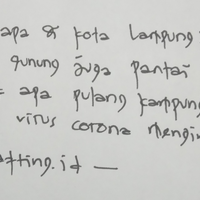 apa & kota Lampung
gunung juga pantai
apa pulang kampung
virus corona mengin
tting.id —